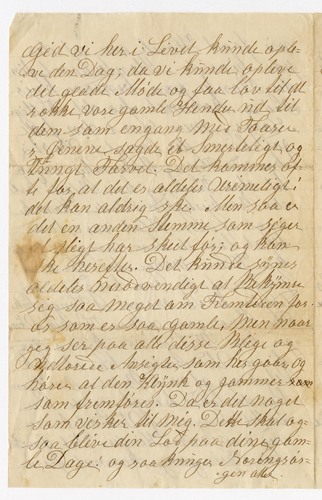 Gid vi her i Livet kunde ople-
ve den Dag; da vi kunde opleve
det glade Møde og faa lov til at
række vore gamle Hænder ud til
dem som engang med Taarer
i Øinene sagde et smerteligt og
Tungt Farvel. Det kommer of-
te for, at det er aldeles Urimeligt i
det kan aldrig ske. Men saa er
det en anden Stemme som siger
at sligt har skeet før; og kan
ske herefter. Det kunde synes
aldeles unødvendigt at Bekymre
sig saa meget om Fremtiden for
os som er saa gamle, Men naar
jeg ser paa alle disse blege og
Ansigter som her gaar, og
hører al den Klynk og Jammer
som fremføres. Da er det noget
som visker til mig. Dette skal og-
saa blive din Lod paa dine gam-
le Dage; og saa kninger
gen alle